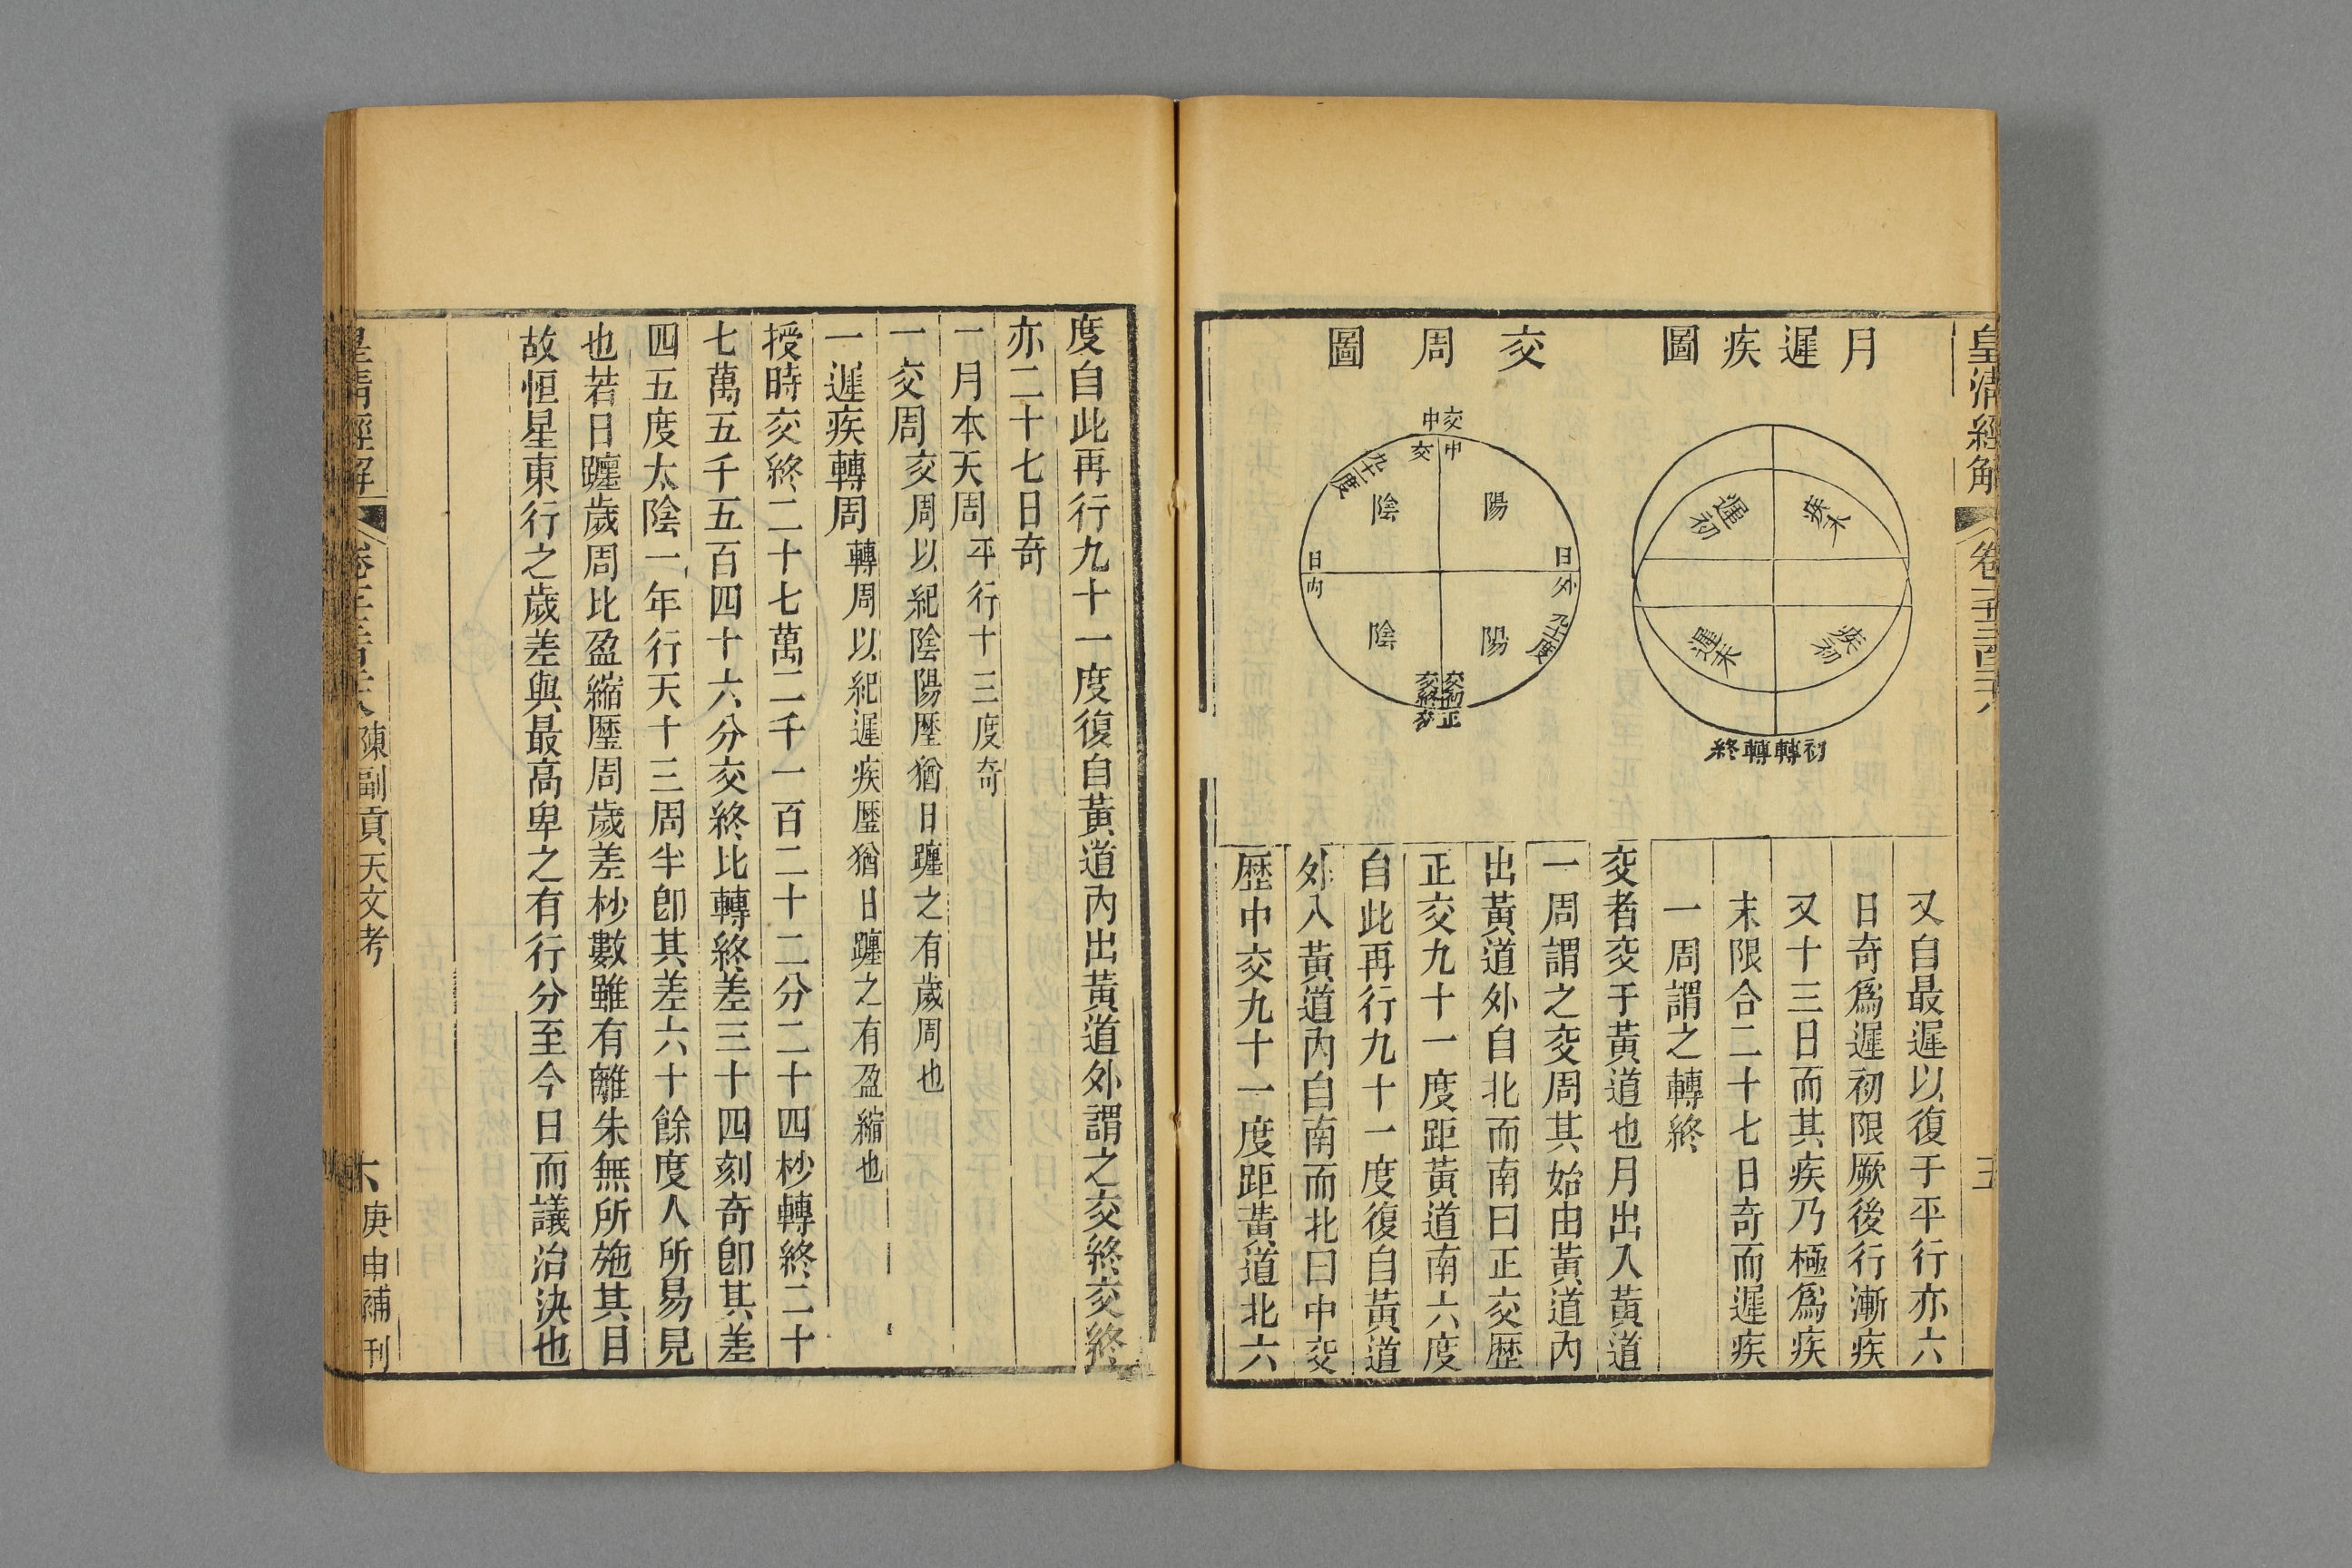 皇清經解
月遲疾圖
疾末
遲初
疾初
遲末
初轉轉終
交周圖
交中
中交
陽
陰
九十一度
日外
日內
陽
陰
九十一度
交初正
交終交
又自最遲以復于平行亦六
日奇爲遲初限厥後行漸疾
又十三日而其疾乃極爲疾
末限合二十七日奇而遲疾
一周謂之轉終
交者交于黃道也月出入黃道
一周謂之交周其始由黃道內
出黃道外自北而南曰正交歷
正交九十一度距黃道南六度
自此再行九十一度復自黃道
外入黃道內自南而北曰中交
歷中交九十一度距黃道北六
度自此再行九十一度復自黃道內出黃道外謂之交終交終
亦二十七日奇
一月本天周平行十三度奇
一交周交周以紀陰陽歷猶日躔之有歲周也
一遲疾轉周轉周以紀遲疾歷猶日躔之有盈縮也
授時交終二十七萬二千一百二十二分二十四秒轉終二十
七萬五千五百四十六分交終比轉終差三十四刻奇卽其差
四五度太陰一年行天十三周半卽其差六十餘度人所易見
也若日躔歲周比盈縮歷周歲差杪數雖有離朱無所施其目
故恒星東行之歲差與最高卑之有行分至今日而議治決也
皇清經解
陳副貢天文考
六
庚申補刊